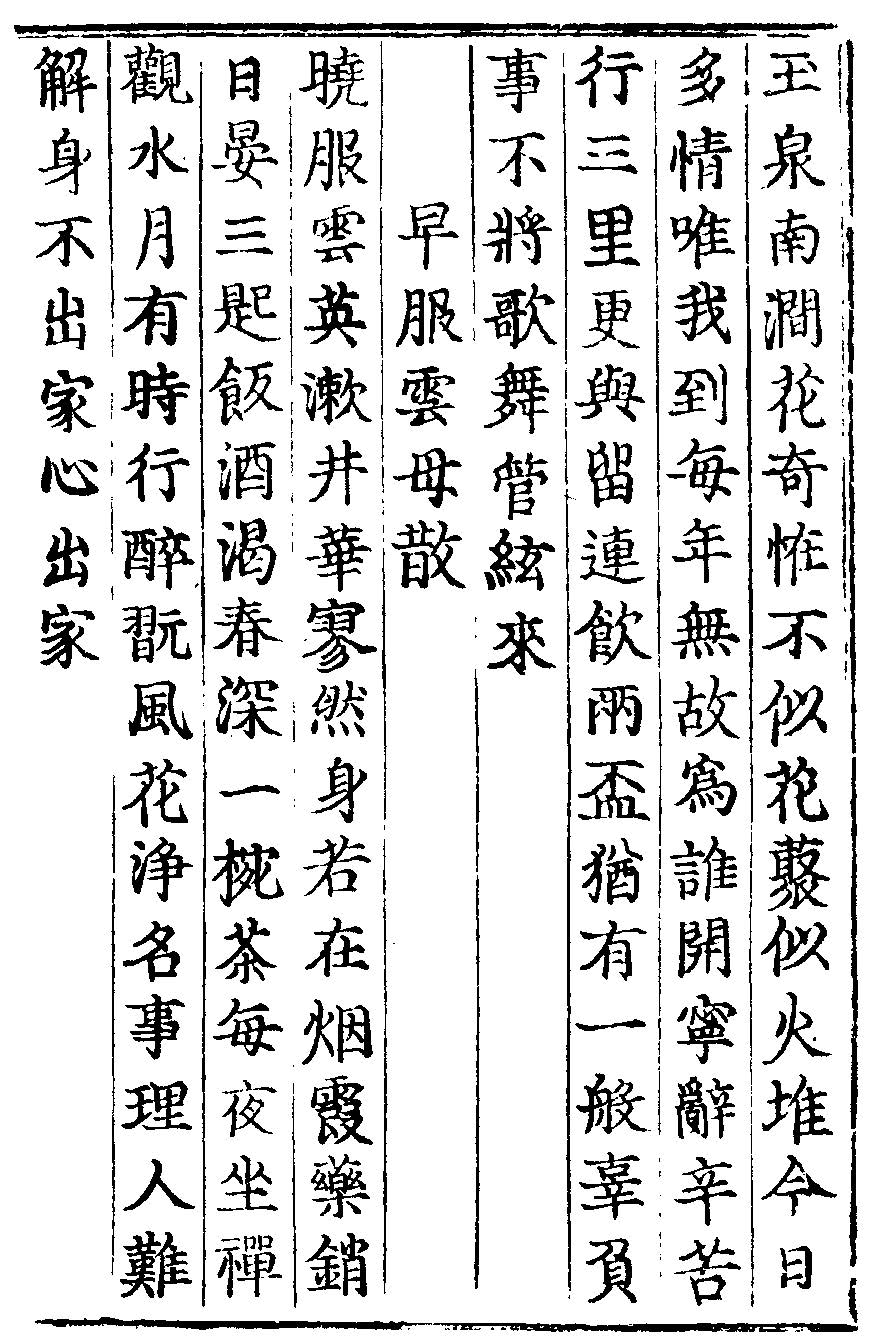 玉泉南澗花奇恠不似花藂似火堆今日
多情唯我到每年無故爲誰開寧辭辛苦
行三里更與留連飲兩盃猶有一般辜負
事不將歌舞管絃來
早服雲母散
曉服雲英漱井華寥然身若在烟霞藥銷
日晏三匙飯酒渴春深一椀茶每夜坐禪
觀水月有時行醉翫風花浄名事理人難
解身不出家心出家